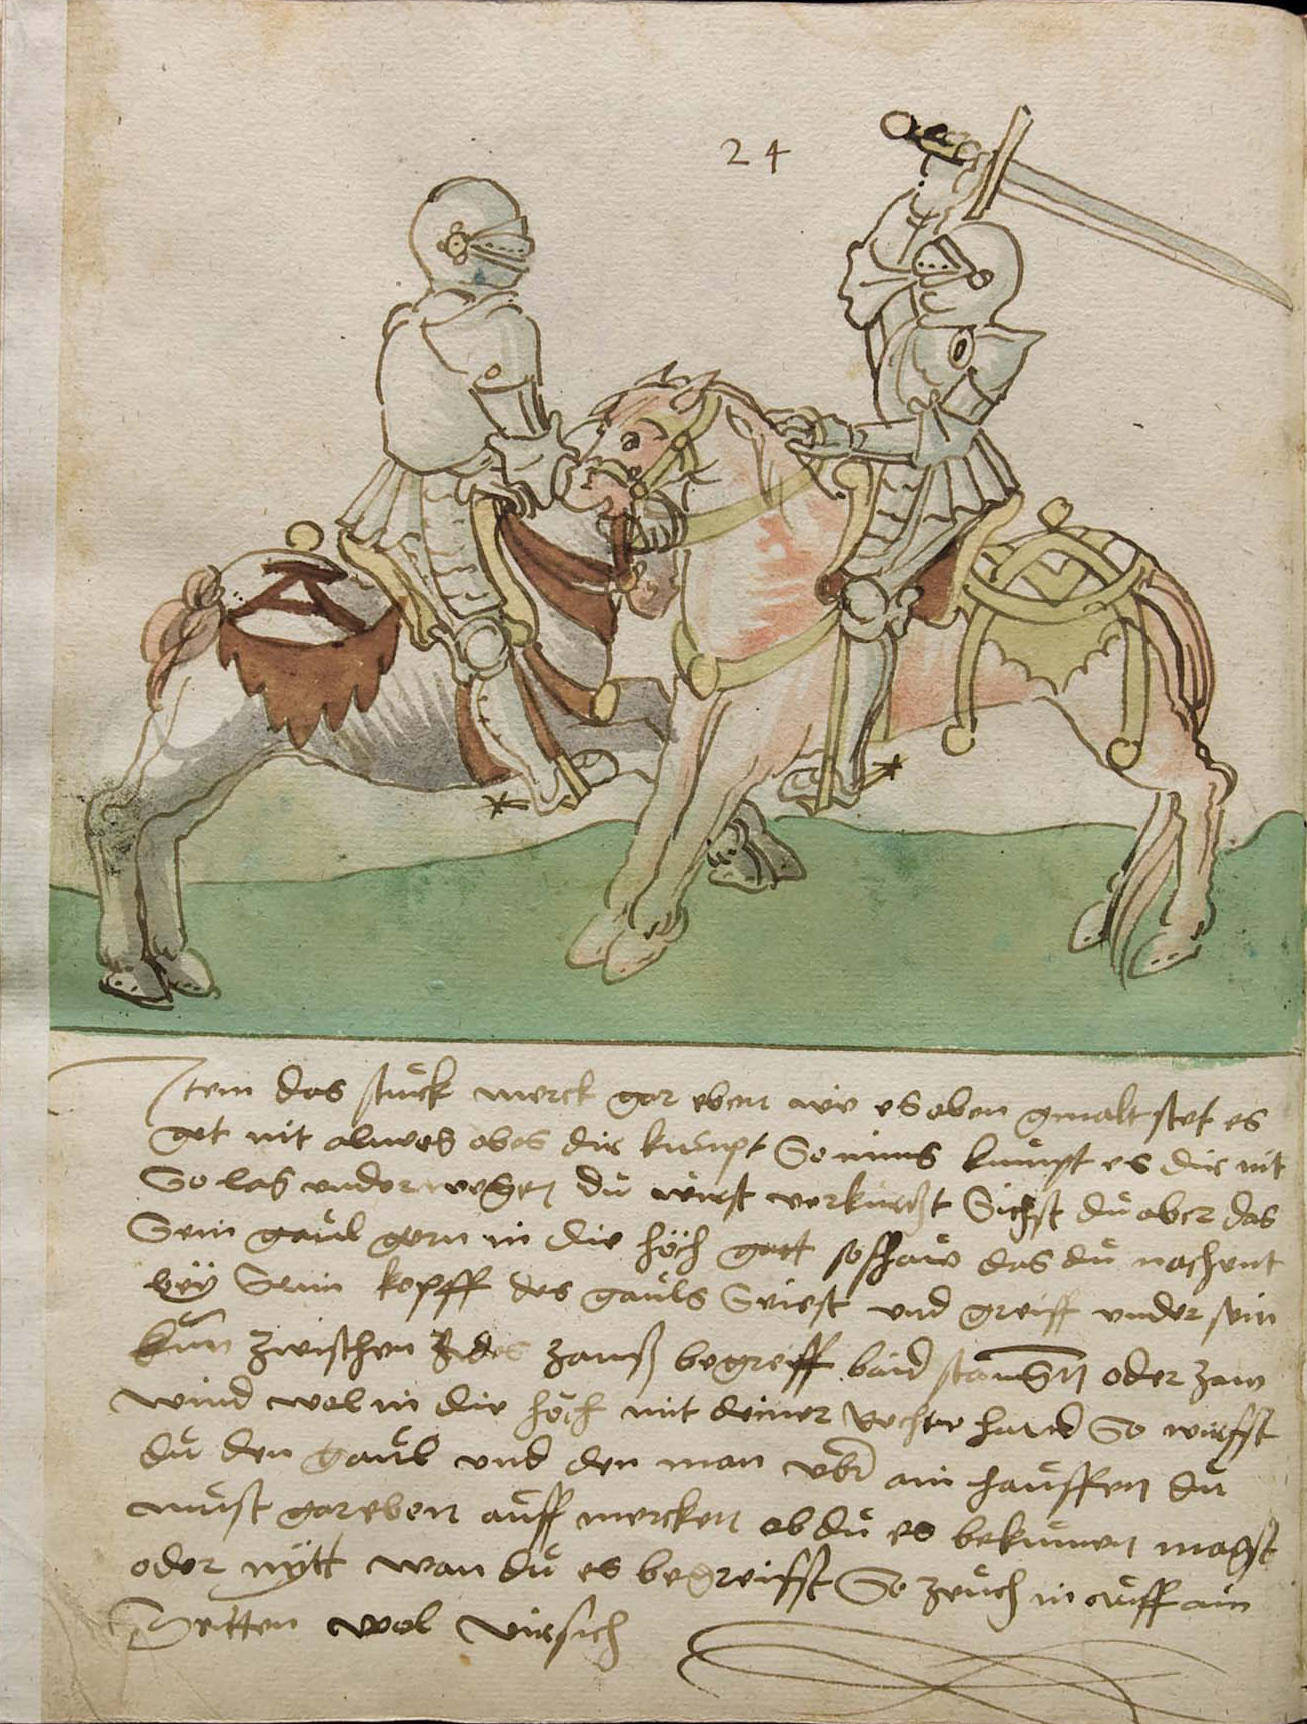 24
Item das stuck merck gar eben wie es oben gmalt stet es
get nit alweg obes dir kumpt So nims kumpt es dir nit
So las underwegen du wirst verkurtzt Sichst du aber das
Sein gaul gern in die höch gett so schaw das du nachent
bey Seim kopff des gauls Seiest und greiff under sein
kün zwischen des zams begreiff baid stangen oder zam
wind wol in die höch mit deiner rechte hand So wirfst
du den gaul und den man uber ain hauffen du
must gar eben auff mercken ob du es bekumen magst
oder nytt wan du es begreifst So zeuch in auff ain
Seitten wol virsich